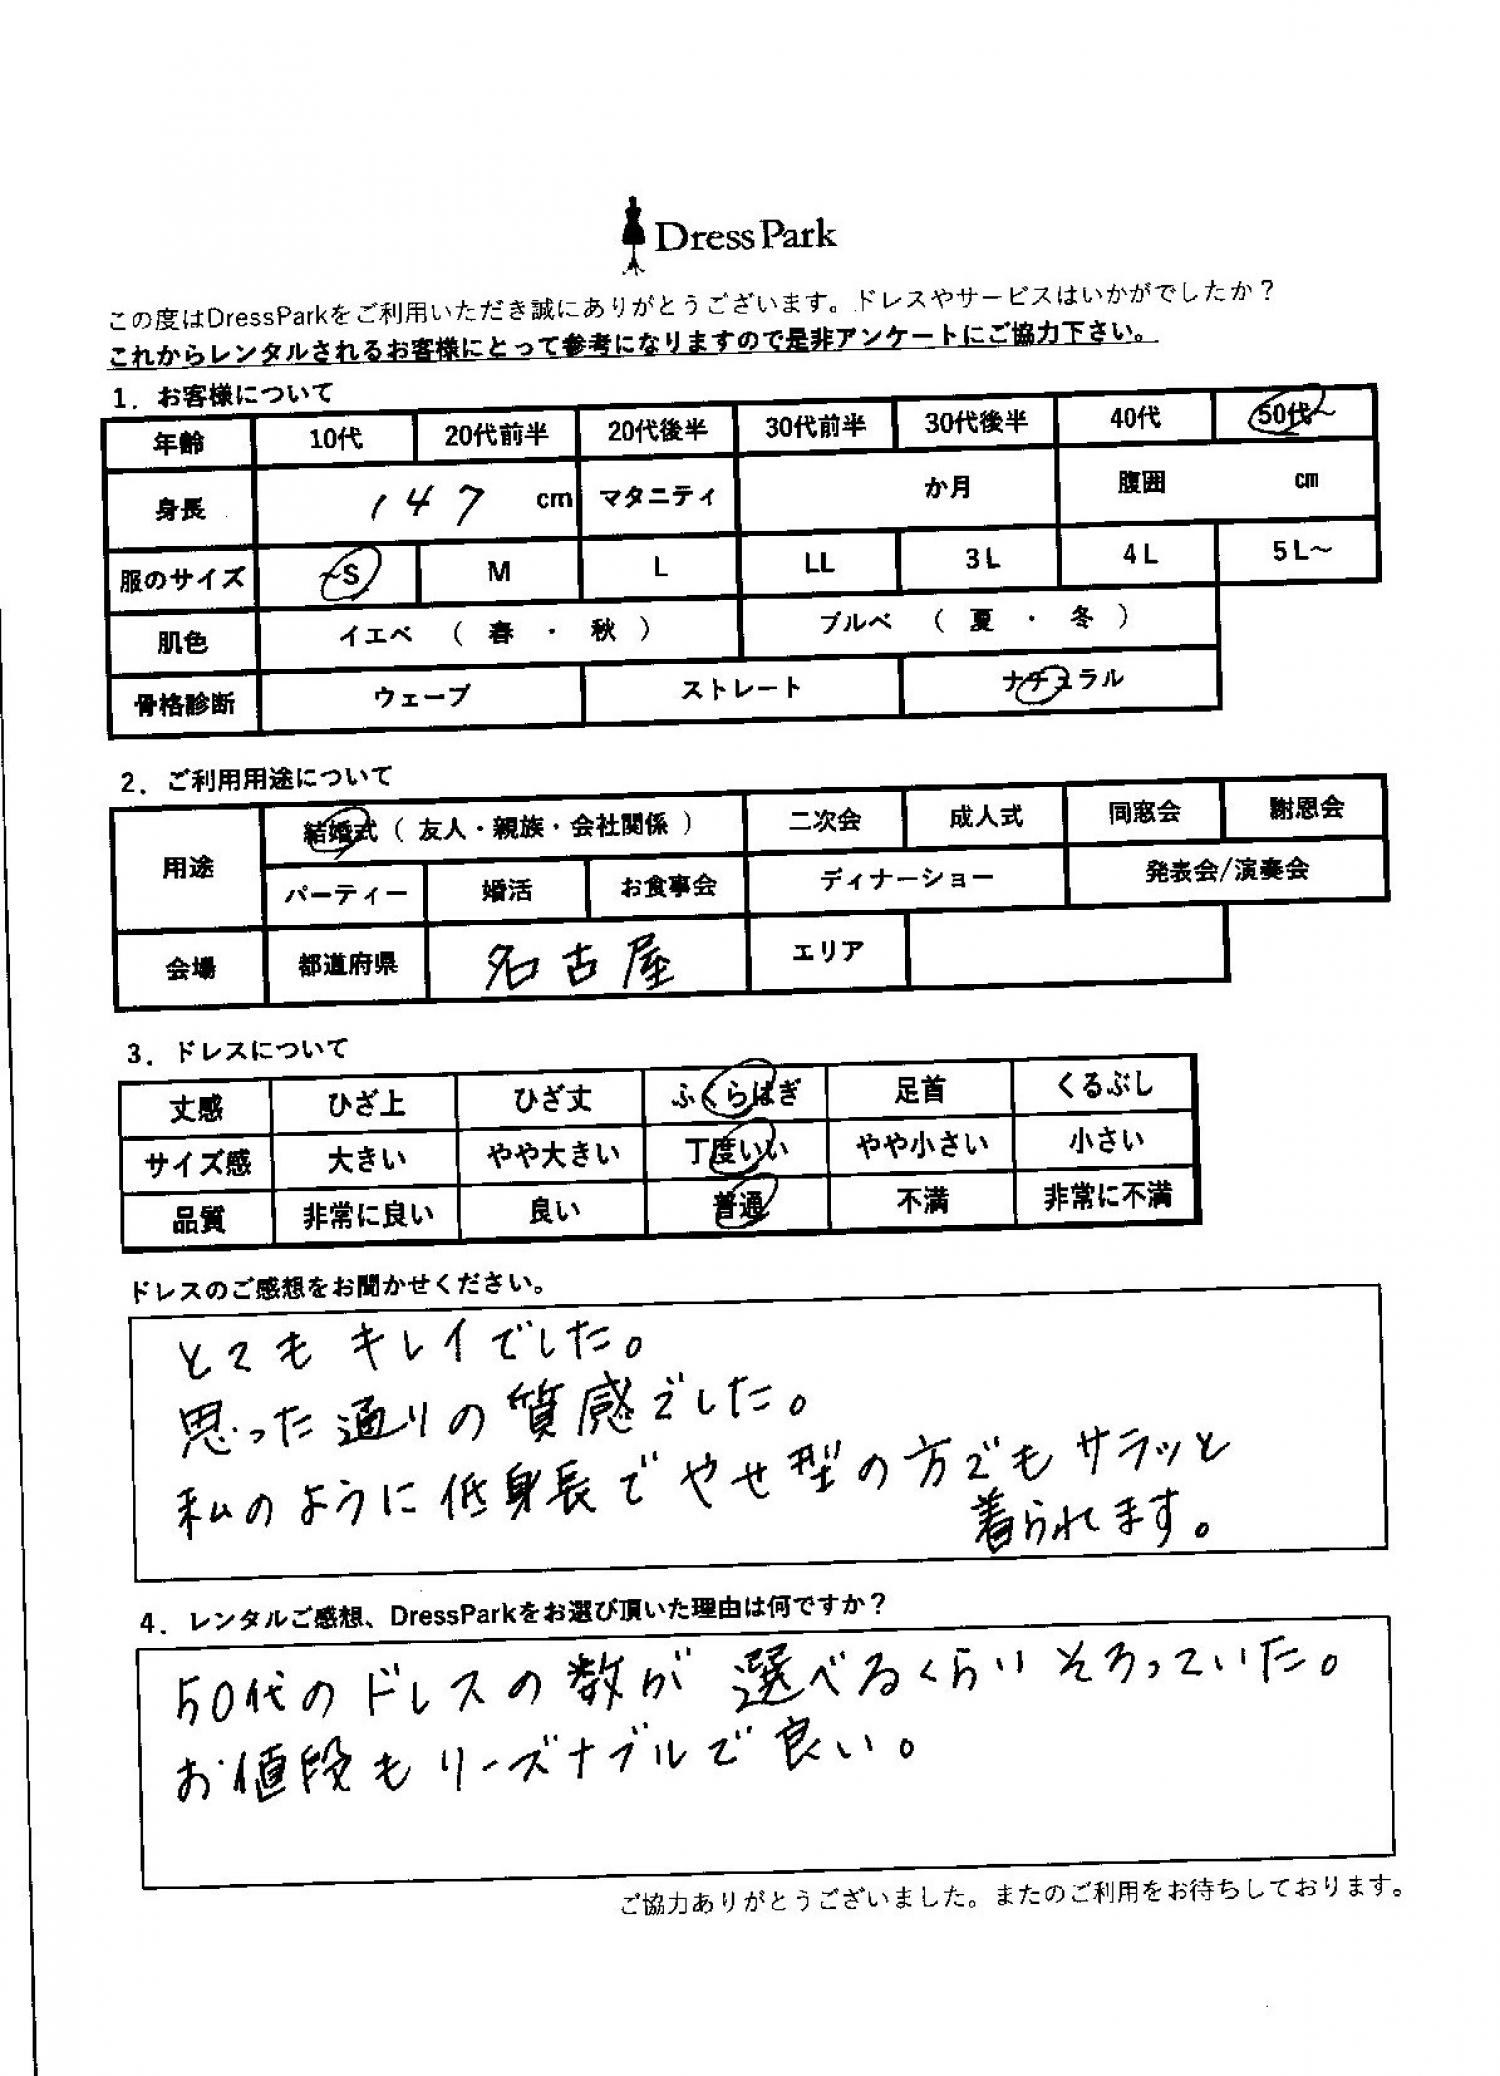 Dress Park
この度はDressParkをご利用いただき誠にありがとうございます。ドレスやサービスはいかがでしたか？
これからレンタルされるお客様にとって参考になりますので是非アンケートにご協力下さい。
1．お客様について
年齢 10代 20代前半 20代後半 30代前半 30代後半 40代 50代～
身長 147 cm マタニティ か月 腹囲 cm
服のサイズ ~S M L LL 3L 4L 5L～
肌色 イエベ （ 春 ・ 秋 ） ブルベ （ 夏 ・ 冬 ）
骨格診断 ウェーブ ストレート ナチュラル
2．ご利用用途について
用途 結婚式（ 友人・親族・会社関係 ） 二次会 成人式 同窓会 謝恩会
パーティー 婚活 お食事会 ディナーショー 発表会/演奏会
会場 都道府県 名古屋 エリア
3．ドレスについて
丈感 ひざ上 ひざ丈 ふくらはぎ 足首 くるぶし
サイズ感 大きい やや大きい 丁度いい やや小さい 小さい
品質 非常に良い 良い 普通 不満 非常に不満
ドレスのご感想をお聞かせください。
とてもキレイでした。
思った通りの質感でした。
私のように低身長でやせ型の方でもサラッと
着られます。
4．レンタルご感想、DressParkをお選び頂いた理由は何ですか？
50代のドレスの数が選べるくらいそろっていた。
お値段もリーズナブルで良い。
ご協力ありがとうございました。またのご利用をお待ちしております。